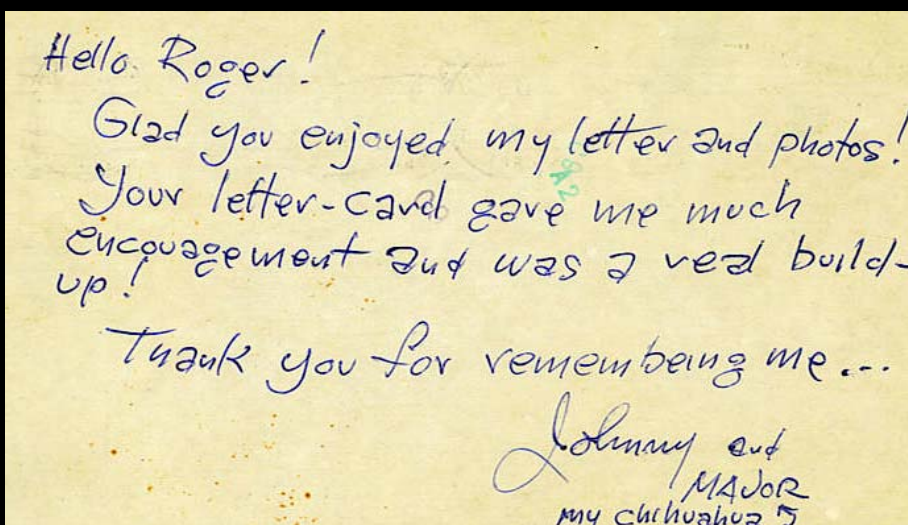 Hello Roger!
Glad you enjoyed my letter and photos!
Your letter-card gave me much
encouagement and was a real build-
up!
Thank you for remembeing me...
Johnny and
MAJOR
my chihuahua